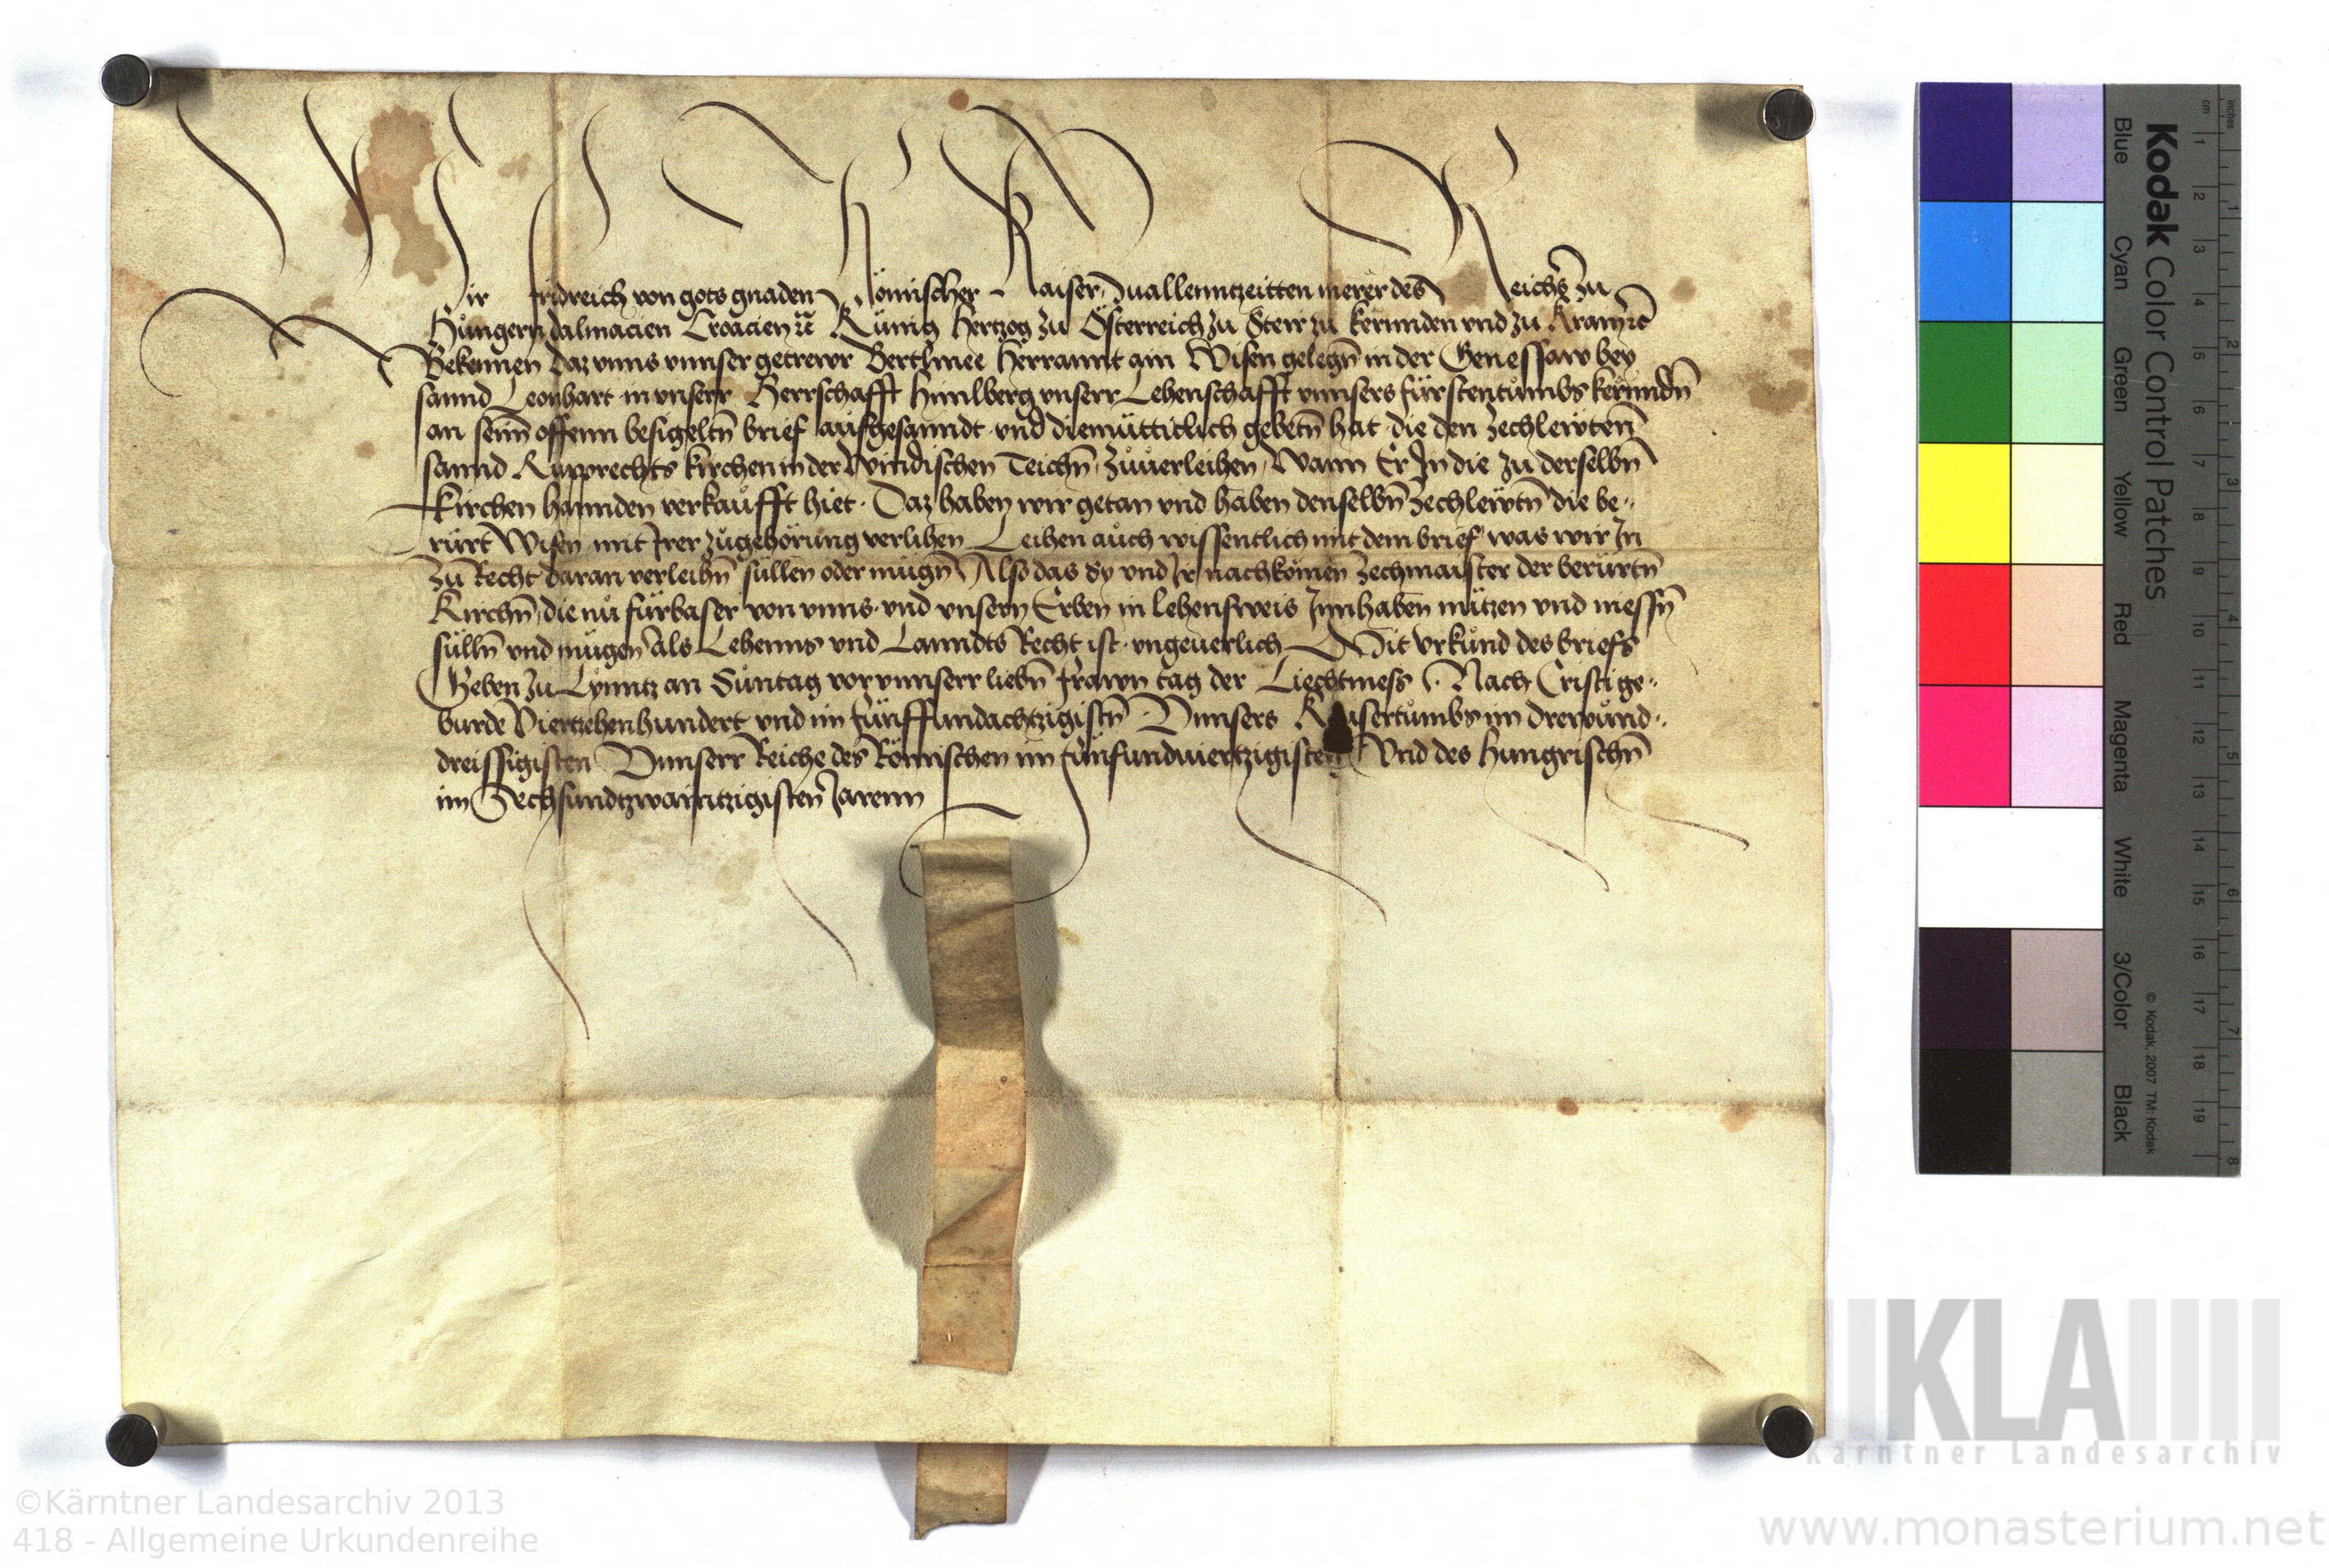 Wir Fridreich von gots gnaden Römischer Kaiser Zuallenntzeitten merer des Reichs zu
Hungern Dalmacien Croacien ꝛc̄ Kunig Hertzog zu Österreich zu Steir zu kernnden vnd zu Krain ꝛc̄
Bekennen daz vnns vnnser getrewr Berthmee Herrannt ain Wisen gelegn̄ in der Genessaw bey
sannd Leonhart in vnserr Herrschafft Himlberg vnserr Lehenschafft vnnsers fürstentumbs kernndn̄
an seim̄ offenn besigeltn̄ brief aufgesanndt vnd diemüttiklich gebetn̄ hat die den zechlewten̄
sannd Rupprechts kirchen in der Windischen Teichn̄ zuuerleihen Wann Er In die zu derselbn̄
kirchen hannden verkaufft hiet Daz haben wir getan vnd haben denselbn̄ zechlewtn̄ die be„
rürt Wisen mit Irer zugehörung verlihen Leihen auch wissentlich mit dem brief was wir In
zu Recht daran verleihn̄ süllen oder mugn̄ Also das Sy vnd Ir nachkomen zechmaister der berürtn̄
Kirchn̄ die nu fürbaser von vnns vnd vnsern Erben in lehensweis Innhaben nützen vnd niessn̄
sülln̄ vnd mügen als Lehenns vnd Lanndts Recht ist vngeuerlich Mit vrkund des briefs
Geben zu Lynntz an Suntag vor vnnserr liebn̄ frawn tag der Liechtmess Nach Cristi ge„
burde Viertzehenhundert vnd im fünffundachtzigistn̄ Vnnsers Kaisertumbs im drewund„
dreissigisten Vnnserr Reiche des Römischen im fünfundviertzigisten Vnd des Hungrischn̄
im Sechsundtzwaintzigisten Jarenn
Kodak Color Control Patches
Blue Cyan Green Yellow Red Magenta White 3/Color Black
inches 1 2 3 4 5 6 7 8
cm 1 2 3 4 5 6 7 8 9 10 11 12 13 14 15 16 17 18 19
© Kodak, 2007 TM: Kodak
KLA
Kärntner Landesarchiv
©Kärntner Landesarchiv 2013
418 - Allgemeine Urkundenreihe
www.monasterium.net